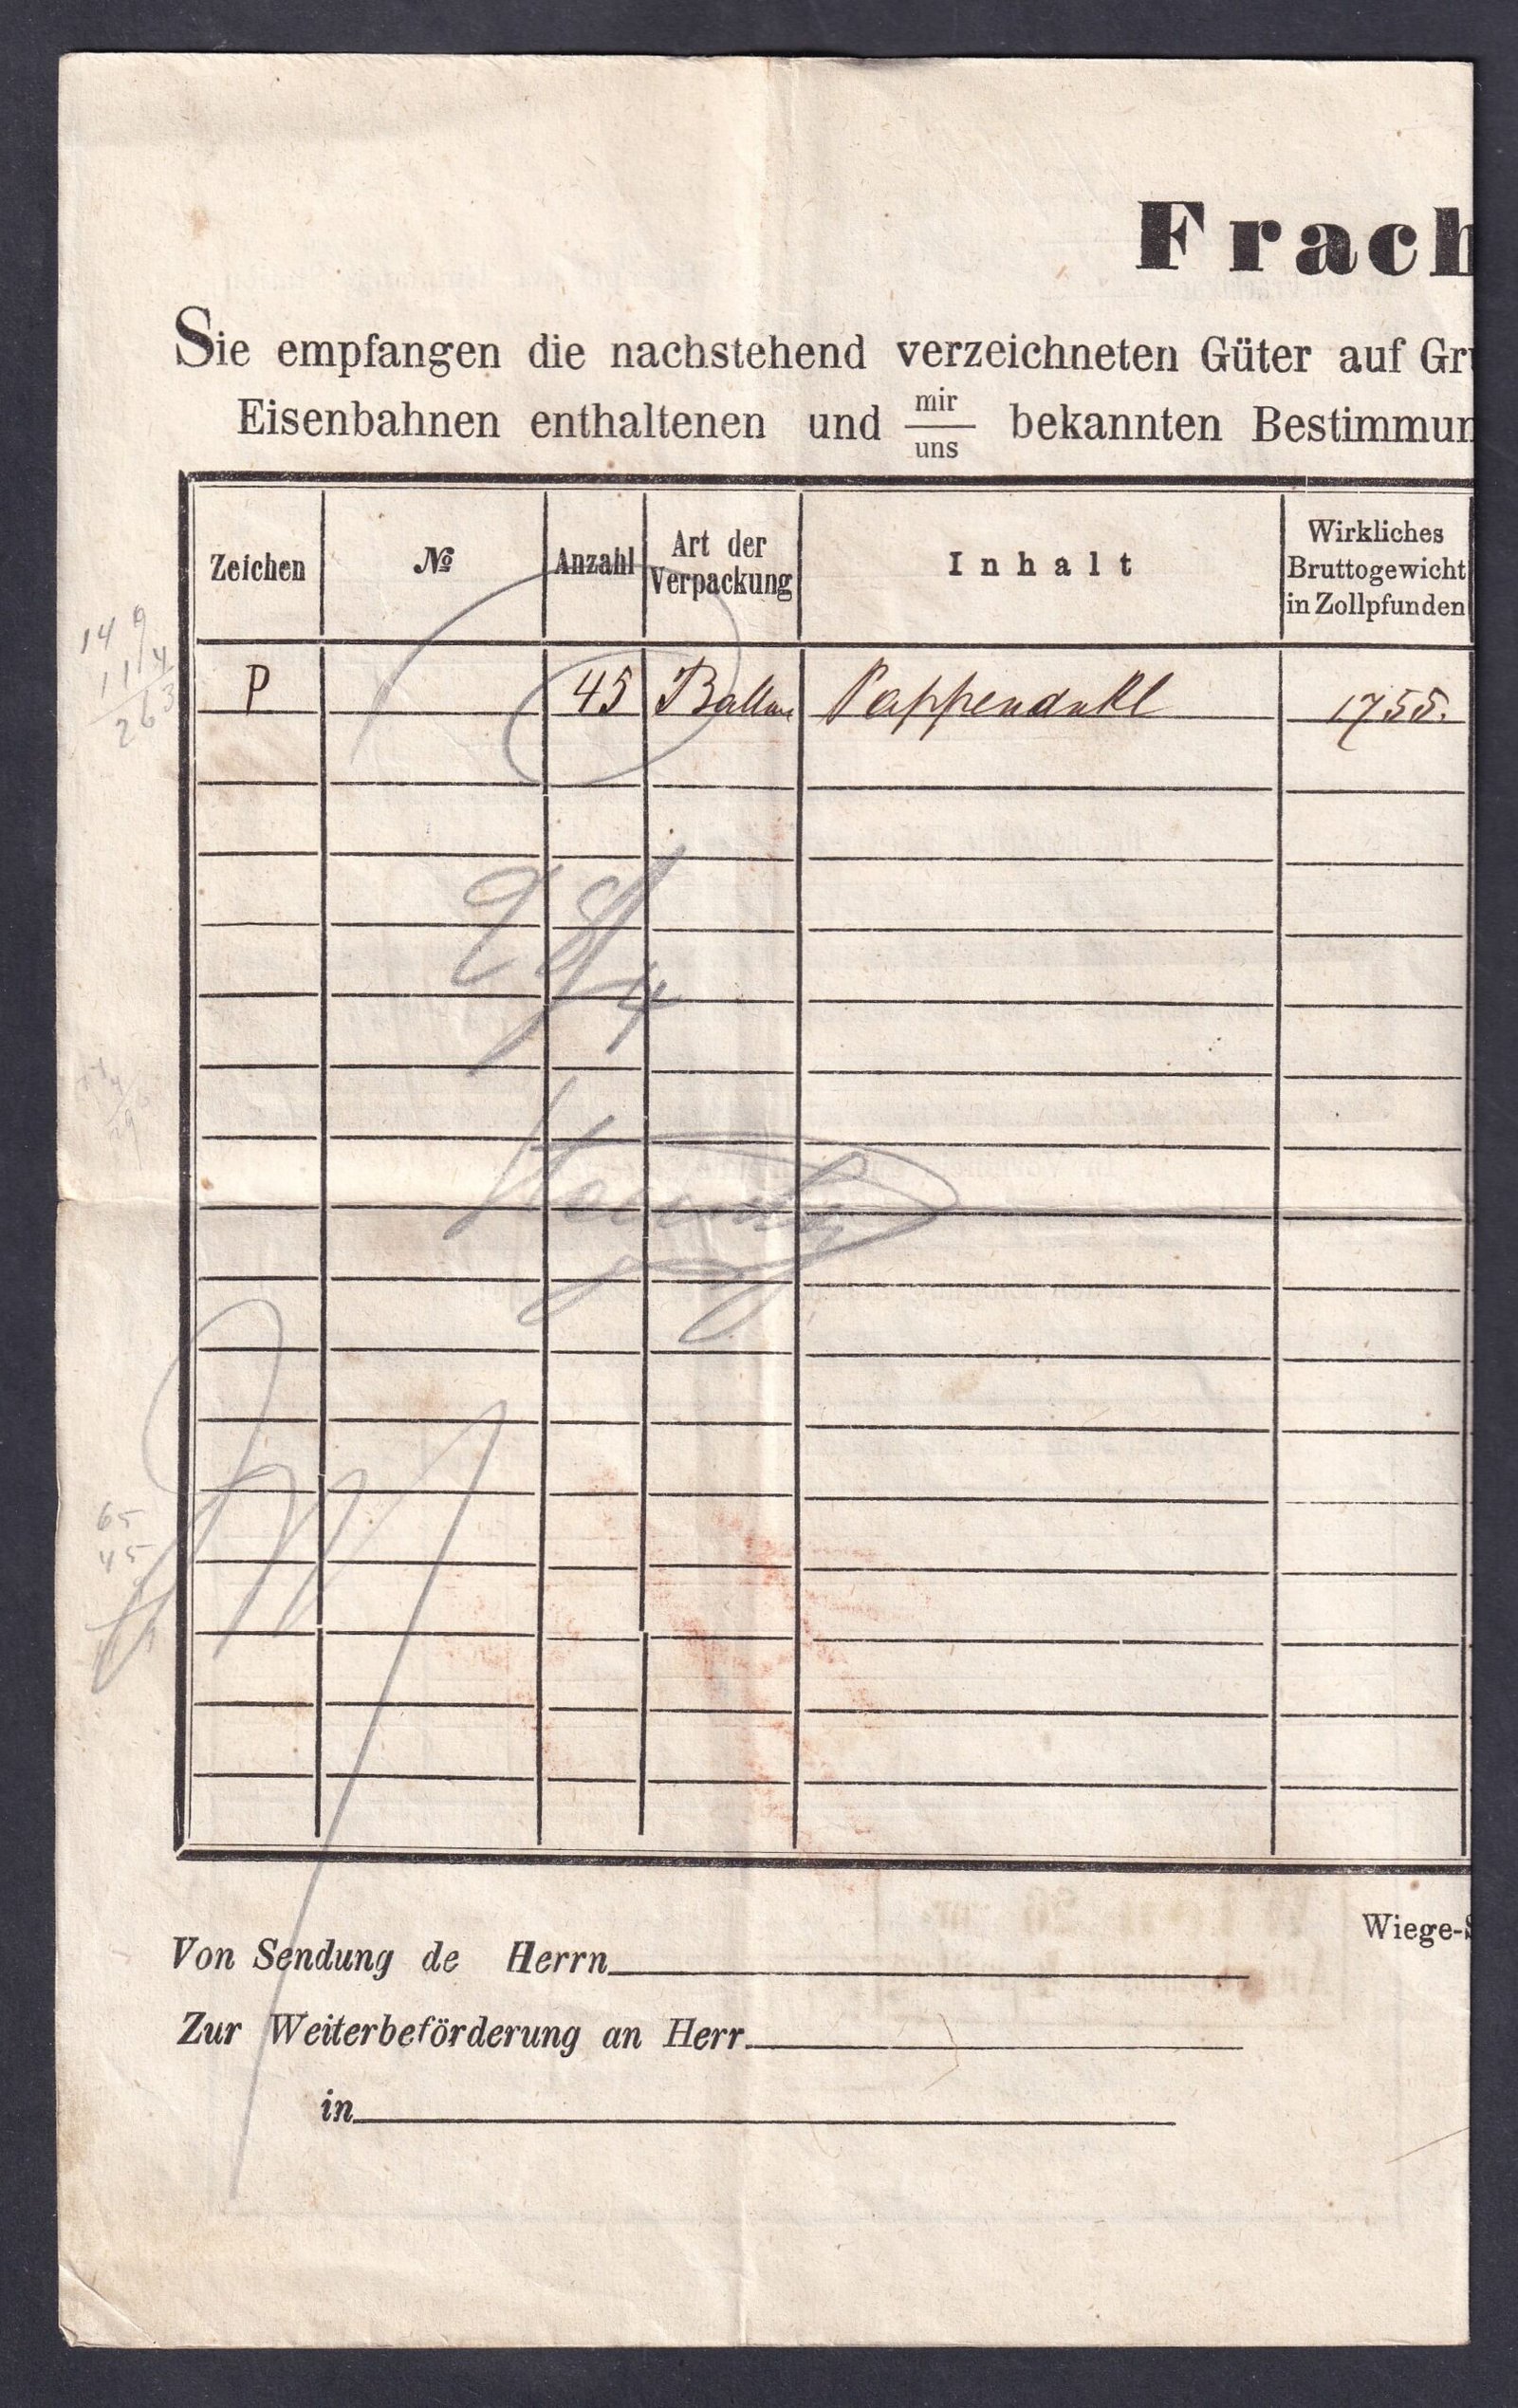 Frach
Sie empfangen die nachstehend verzeichneten Güter auf Gru
Eisenbahnen enthaltenen und mir/uns bekannten Bestimmun
Zeichen № Anzahl Art der Verpackung Inhalt Wirkliches Bruttogewicht in Zollpfunden
P 45 Ballen Pappendekl 1755.
149
114
263
28/4
65
45
Wiege-S
Von Sendung de Herrn
Zur Weiterbeförderung an Herr
in